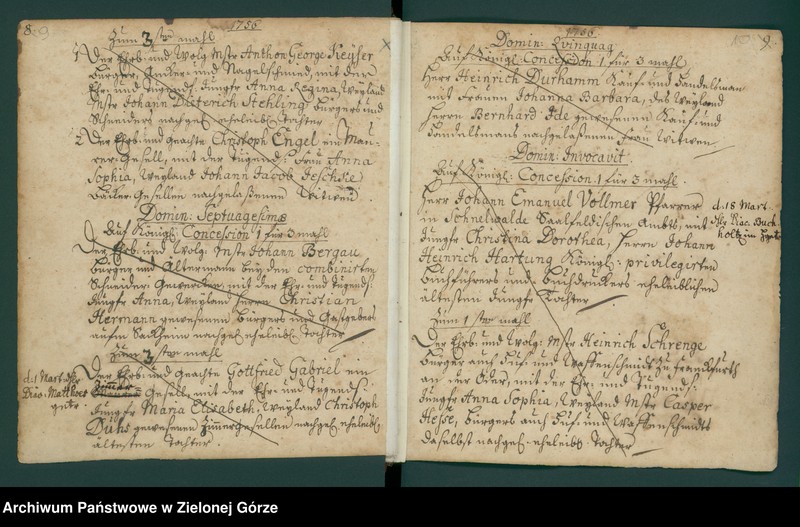 8.
1756
Zum 3 ten mahl
1 Der Erb: und Wolg: Mstr Anthon George Keyser
Bürger, und Nagelschmied, mit der
Ehr- und Tugends: Jungfr Anna Regina, Weyland
Mstr Johann Dieterich Stehling Bürgers und
Schneiders nachgel: eheleibl: Tochter
2 Der Ehrb: und geachte Christoph Engel ein Mau-
rer-Gesell, mit der Tugends: Frau Anna
Sophia, Weyland Johann Jacob Jeschke
Gesellen nachgelaßenen Witwen
Domin: Septuagesimæ
Auf Königl: Concession 1 für 3 mahl
Der Ehrb: und Wolg: Mstr Johann Bergau
Bürger und Altermann bey den combinirten
Schneider- mit der Ehr- und Tugends:
Jungfr Anna, Weyland Herrn Christian
Hermann gewesenen Bürgers und Gastgebers
aufm Sackheim nachgel: eheleibl: Tochter
Zum 3 ten mahl
Der Ehrb: und geachte Gottfried Gabriel ein
Zimer-
Gesell, mit der Ehr- und Tugends:
Jungfr Maria Elisabeth, Weyland Christoph
Duhs gewesenen Zimergesellen nachgel: eheleibl:
ältesten Tochter
d. 1 Mart. Hr
Diac. Matthes
getr.
1756
9.
Domin: Qvinquag
Auf Königl: Concession 1 für 3 mahl
Herr Heinrich Durhamm Kauf- und Handelsman
mit Frauen Johanna Barbara, des Weyland
Herrn Bernhard Ide gewesenen Kauf- und
Handelsmans nachgelaßenen Frau Witwen
Domin: Invocavit.
Auf Königl: Concession 1 für 3 mahl.
Herr Johann Emanuel Vollmer Pfarrer
in Schnellwalde Saalfeldischen Ambts, mit
Jungfr Christina Dorothea, Herrn Johann
Heinrich Hartung Königl: privilegirten
Buchführers und Buchdruckers eheleiblichen
ältesten Jungfr Tochter
d. 18 Mart.
Buch
holtz im
Zum 1 ten mahl
Der Ehrb: und Wolg: Mstr Heinrich Schrenge
Bürger auch Huf- und Waffenschmidt zu Franckfurth
an der Oder, mit der Ehr- und Tugends:
Jungfr Anna Sophia, Weyland Mstr Casper
Hesse, Bürgers auch Huf- und Waffenschmidts
daselbst nachgel: eheleibl: Tochter
Archiwum Państwowe w Zielonej Górze